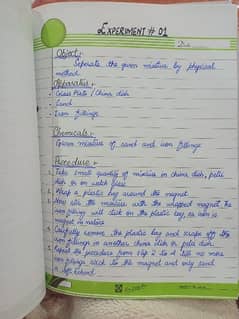 EXPERIMENT # 01
Date
Object:
Seperate the given mixture by physical
method.
Apparatus:
Glass Plate / China dish
Sand
Iron fillings
Chemicals:
Given mixture of sand and iron fillings
Procedure:
1. Take small quantity of mixture in china dish, petri
dish or on watch glass
2. Wrap a plastic bag around the magnet.
3. Now stir the mixture with the wrapped magnet, the
iron fillings will stick on the plastic bag, as iron is
magnetic in nature
4. Carefully remove the plastic bag and scrape off the
iron fillings in another china dish or petri dish.
5. Repeat the procedure from step 2 to 4 till no more
iron fillings stick to the magnet and only sand
is left behind